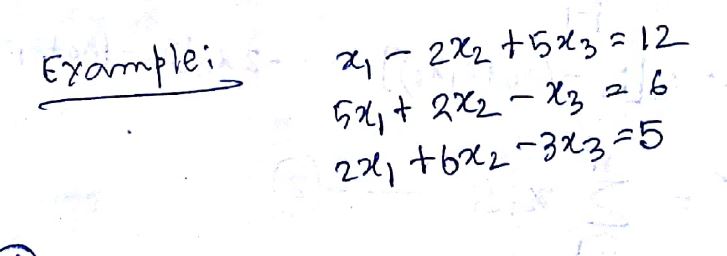 Example:
x₁ - 2x₂ + 5x₃ = 12
5x₁ + 2x₂ - x₃ = 6
2x₁ + 6x₂ - 3x₃ = 5